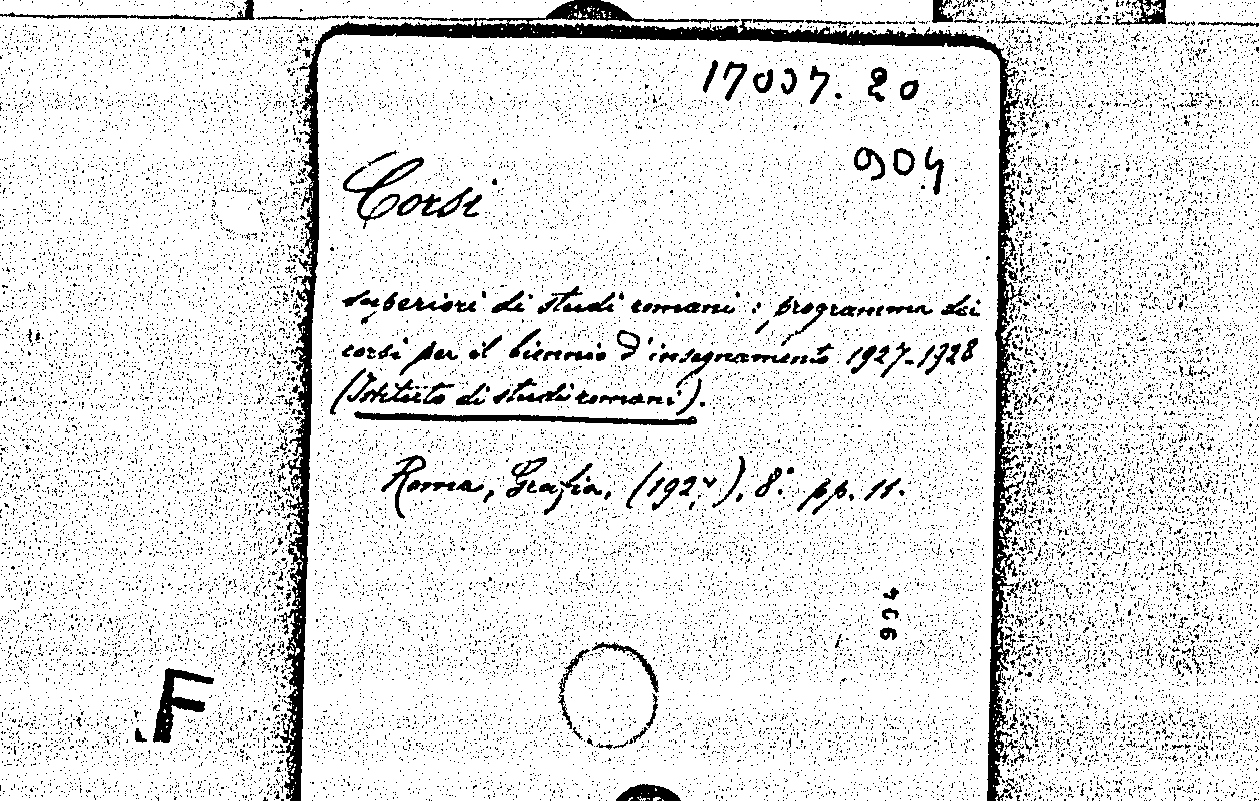 17007. 20
904
Corsi
superiori di studi romani : programma dei
corsi per il biennio d'insegnamento 1927-1928
(Istituto di studi romani).
Roma, Grafia, (1927), 8°. pp. 11.
904
F